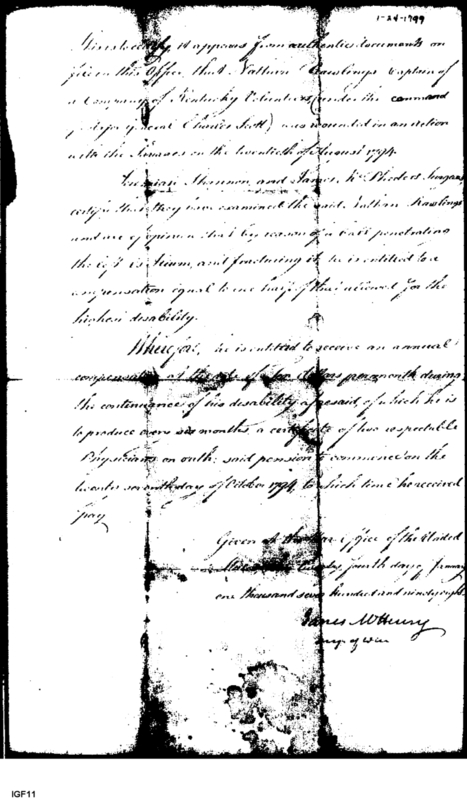 1-24-1799
This is to certify, it appears from authentic documents on
file in this Office that Nathan Rawlings Captain of
a Company of Kentucky Volunteers (under the command
of Major General Charles Scott) was wounded in an action
with the Savages on the twentieth of August 1794.
Shannon, and James Mc Surgeons,
certify that they have examined the said Nathan Rawlings
and are of opinion that by reason of a ball penetrating
the left and fracturing it, he is entitled to a
compensation equal to one half of that allowed for the
highest disability.
Wherefore, he is entitled to receive an annual
compensation at the rate of dollars per month during
the continuance of his disability aforesaid, of which he is
to produce every six months, a certificate of two respectable
Physicians on oath: said pension to commence on the
twenty seventh day of October 1794, to which time he received
pay
Given at the War Office of the United
States this twenty fourth day of
one thousand seven hundred and ninety eight
James McHenry
Secy of War
IGF11